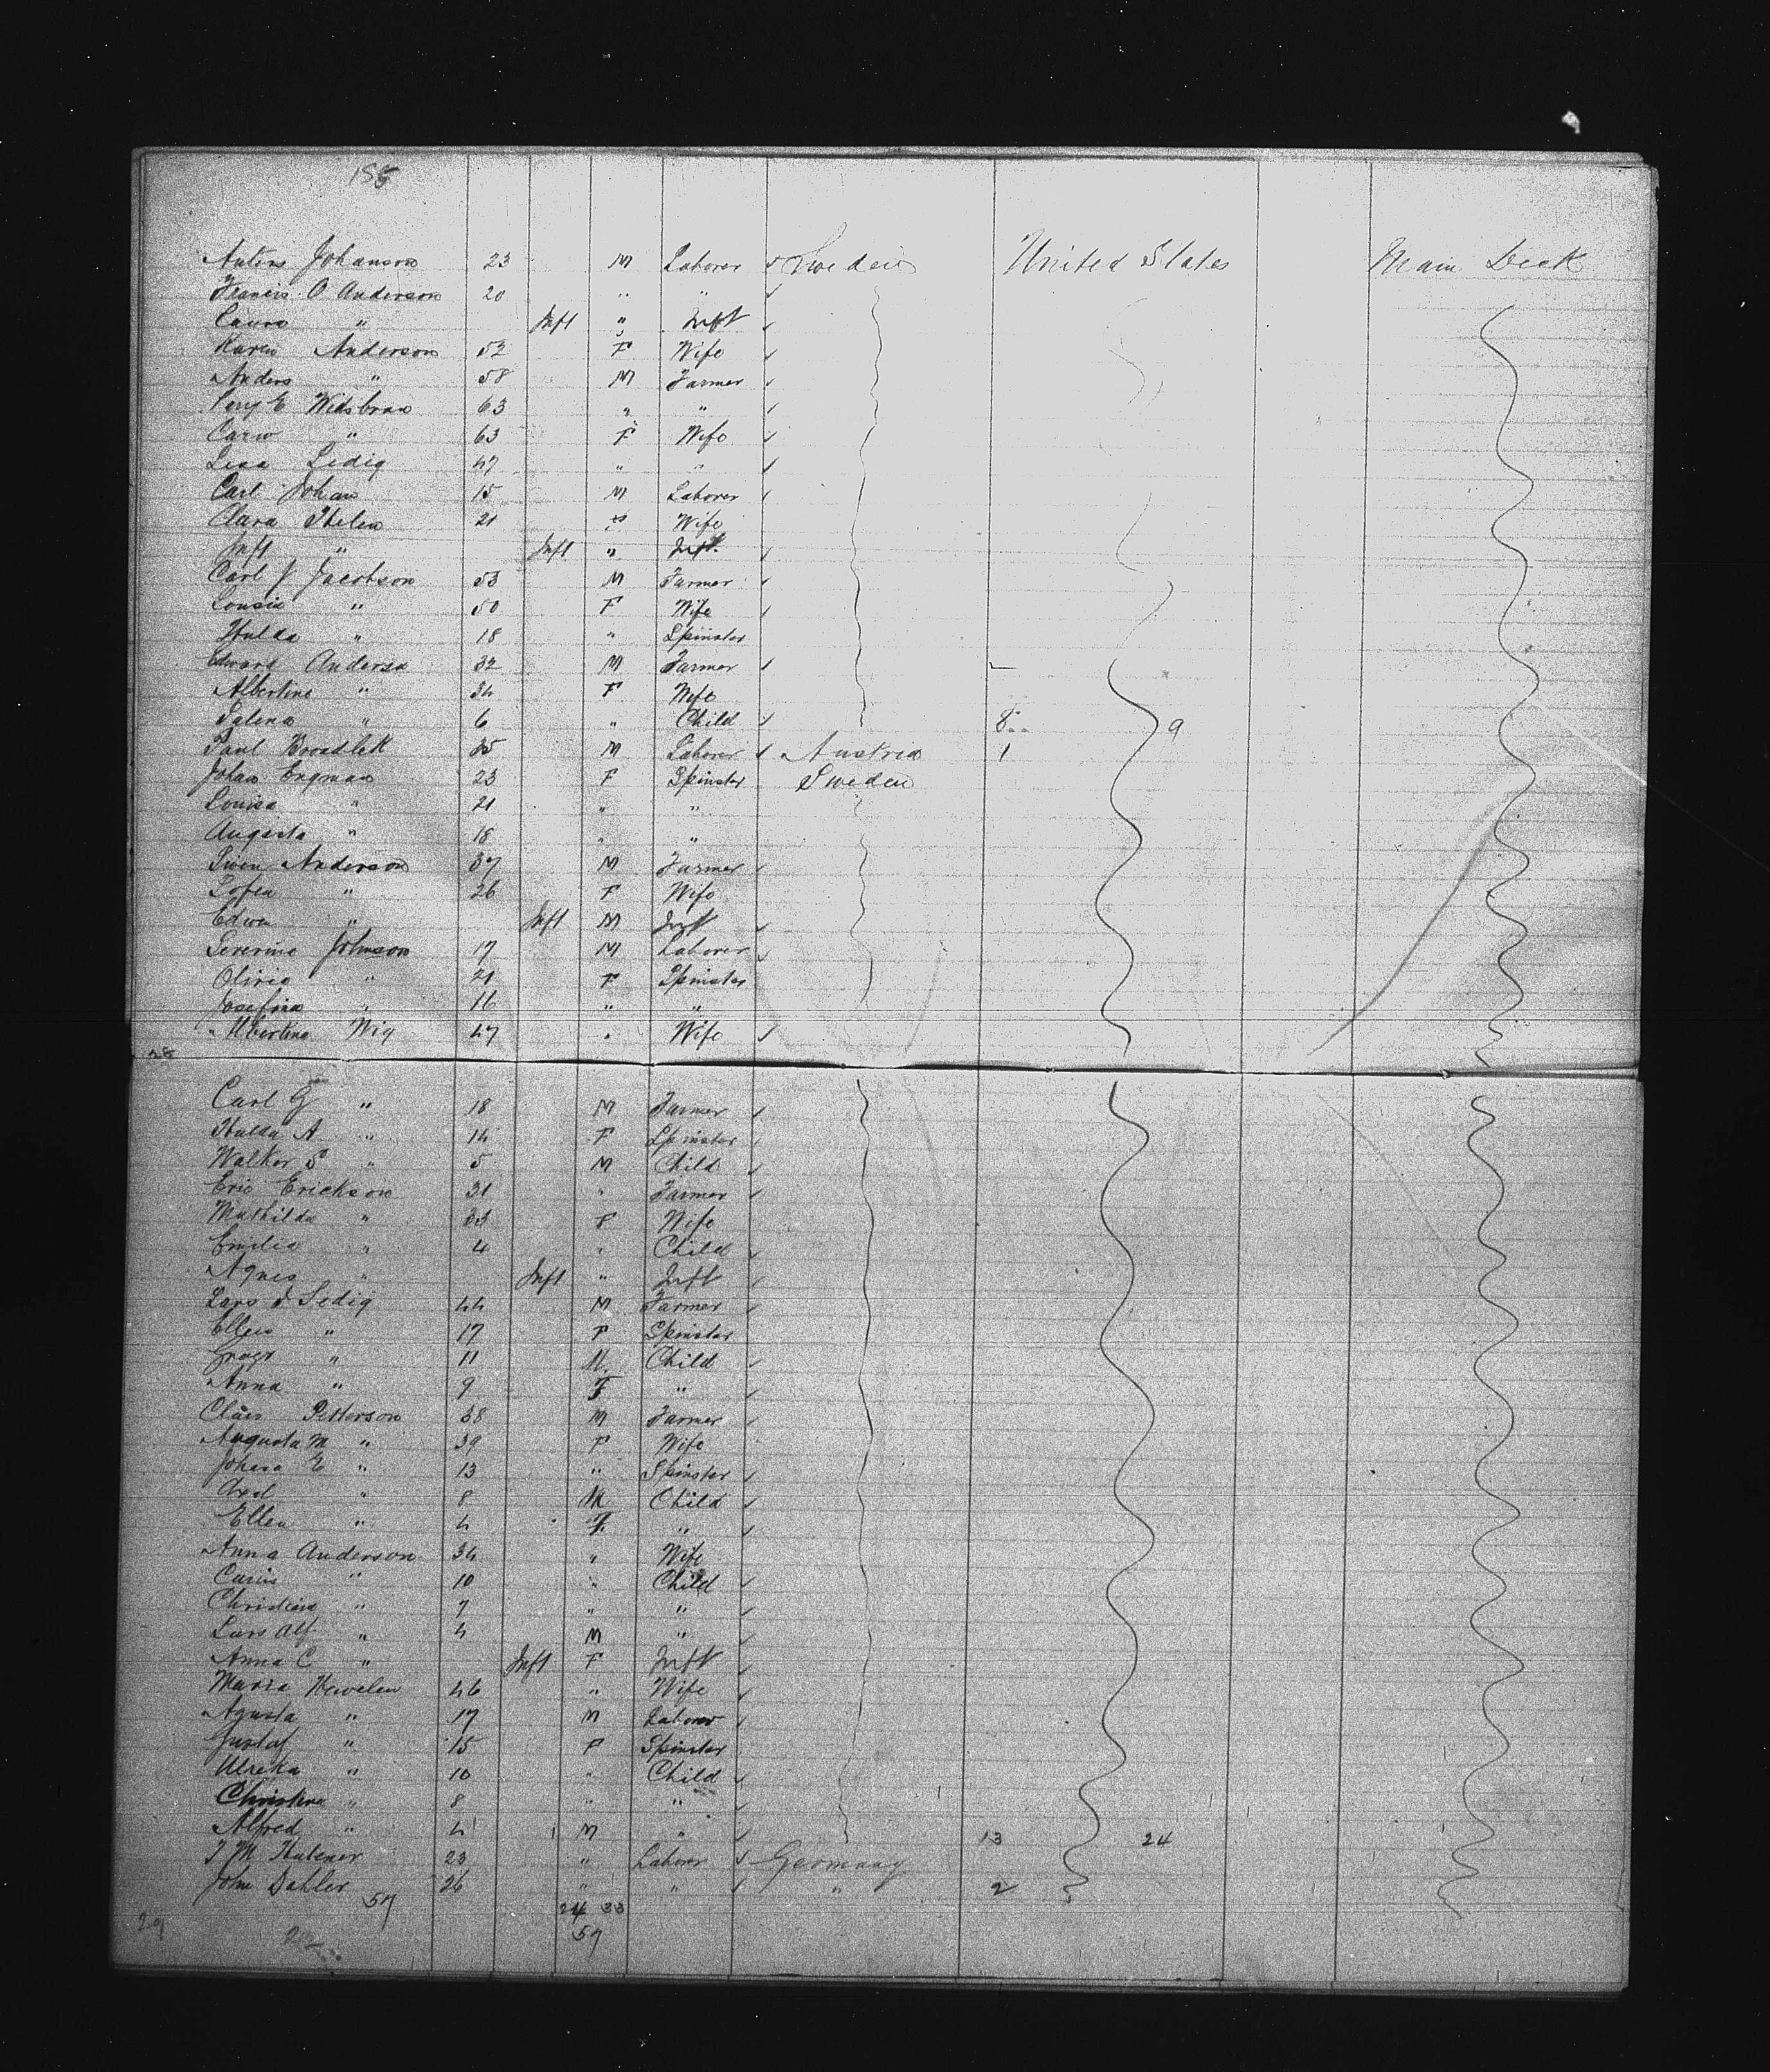 155
Antins Johanson 23 M Laborer ✓ Sweden United States Main Deck
Francis O Anderson 20 " " ✓
Laura " Inft " Inft ✓
Karen Anderson 52 F Wife ✓
Anders " 58 M Farmer ✓
63 " " ✓
Carin " 63 F Wife ✓
Lisa Sedig 47 " " ✓
Carl Johan 15 M Laborer ✓
Clara Thelen 21 F Wife
Inft " Inft " Inft ✓
Carl J Jacobson 53 M Farmer ✓
Lousia " 50 F Wife ✓
Hulda " 18 " Spinster
Edward Anderson 32 M Farmer ✓
Albertine " 34 F Wife
Salena " 6 " Child ✓ 8 9
Paul 35 M Laborer ✓ Austria 1
Johan Engman 23 F Spinster Sweden
Louisa " 21 " "
Augusta " 18 " "
Swen Anderson 37 M Farmer ✓
Sofea " 26 F Wife
Edwin " Inft M Inft ✓
Severine Johnson 17 M Laborer ✓
Olivia " 21 F Spinster
Josefina " 16 " "
Albertina Wig 47 " Wife ✓
28
Carl G " 18 M Farmer ✓
Hulda A " 14 F Spinster ✓
Walker S " 5 M Child ✓
Eric Erickson 31 " Farmer ✓
Mathilda " 33 F Wife
Emilia " 4 " Child ✓
Agnes " Inft " Inft ✓
Lars J Sedig 44 M Farmer ✓
Ellen " 17 F Spinster
" 11 M Child ✓
Anna " 9 F " ✓
Claes Petterson 38 M Farmer ✓
Augusta M " 39 F Wife
Johana E " 13 " Spinster ✓
Axel " 8 M Child ✓
Ellen " 4 F " ✓
Anna Anderson 34 " Wife
Carin " 10 " Child ✓
Christina " 7 " " ✓
Lars Alf " 4 M " ✓
Anna C " Inft F Inft ✓
Maria Hawelen 46 " Wife ✓
Agusta " 17 M Laborer ✓
Gustaf " 15 F Spinster
Ulreka " 10 " Child ✓
Christina " 8 " " ✓
Alfred " 4 M " ✓ 13 24
J M Hubener 23 " Laborer ✓ Germany
John Dahler 26 " " ✓ " 2
57 24 33
29 57